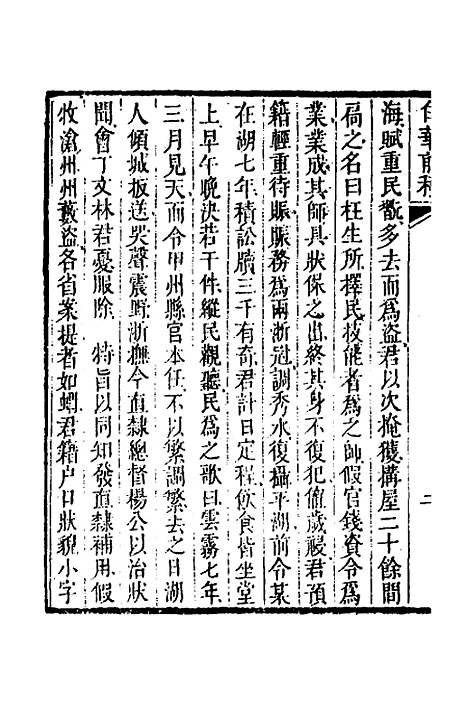 海賦重民黠多去而爲盜君以次掩獲構屋二十餘間
扁之名曰枉生所擇民技能者爲之師假官錢資令爲
業業成其師具狀保之出終其身不復犯值歲祲君預
籍輕重待賑賑務爲兩浙冠調秀水復攝平湖前令某
在湖七年積訟牘三千有奇君計日定程飲食皆坐堂
上早午晚決若干件縱民觀聽民爲之歌曰雲霧七年
三月見天而令甲州縣官本任不以繁調繁去之日湖
人傾城扳送哭聲震野浙撫今直隸總督楊公以治狀
聞會丁文林君憂服除 特旨以同知發直隸補用假
牧滄州州藪盜各省案提者如蝟君籍戶口狀貌小字
二